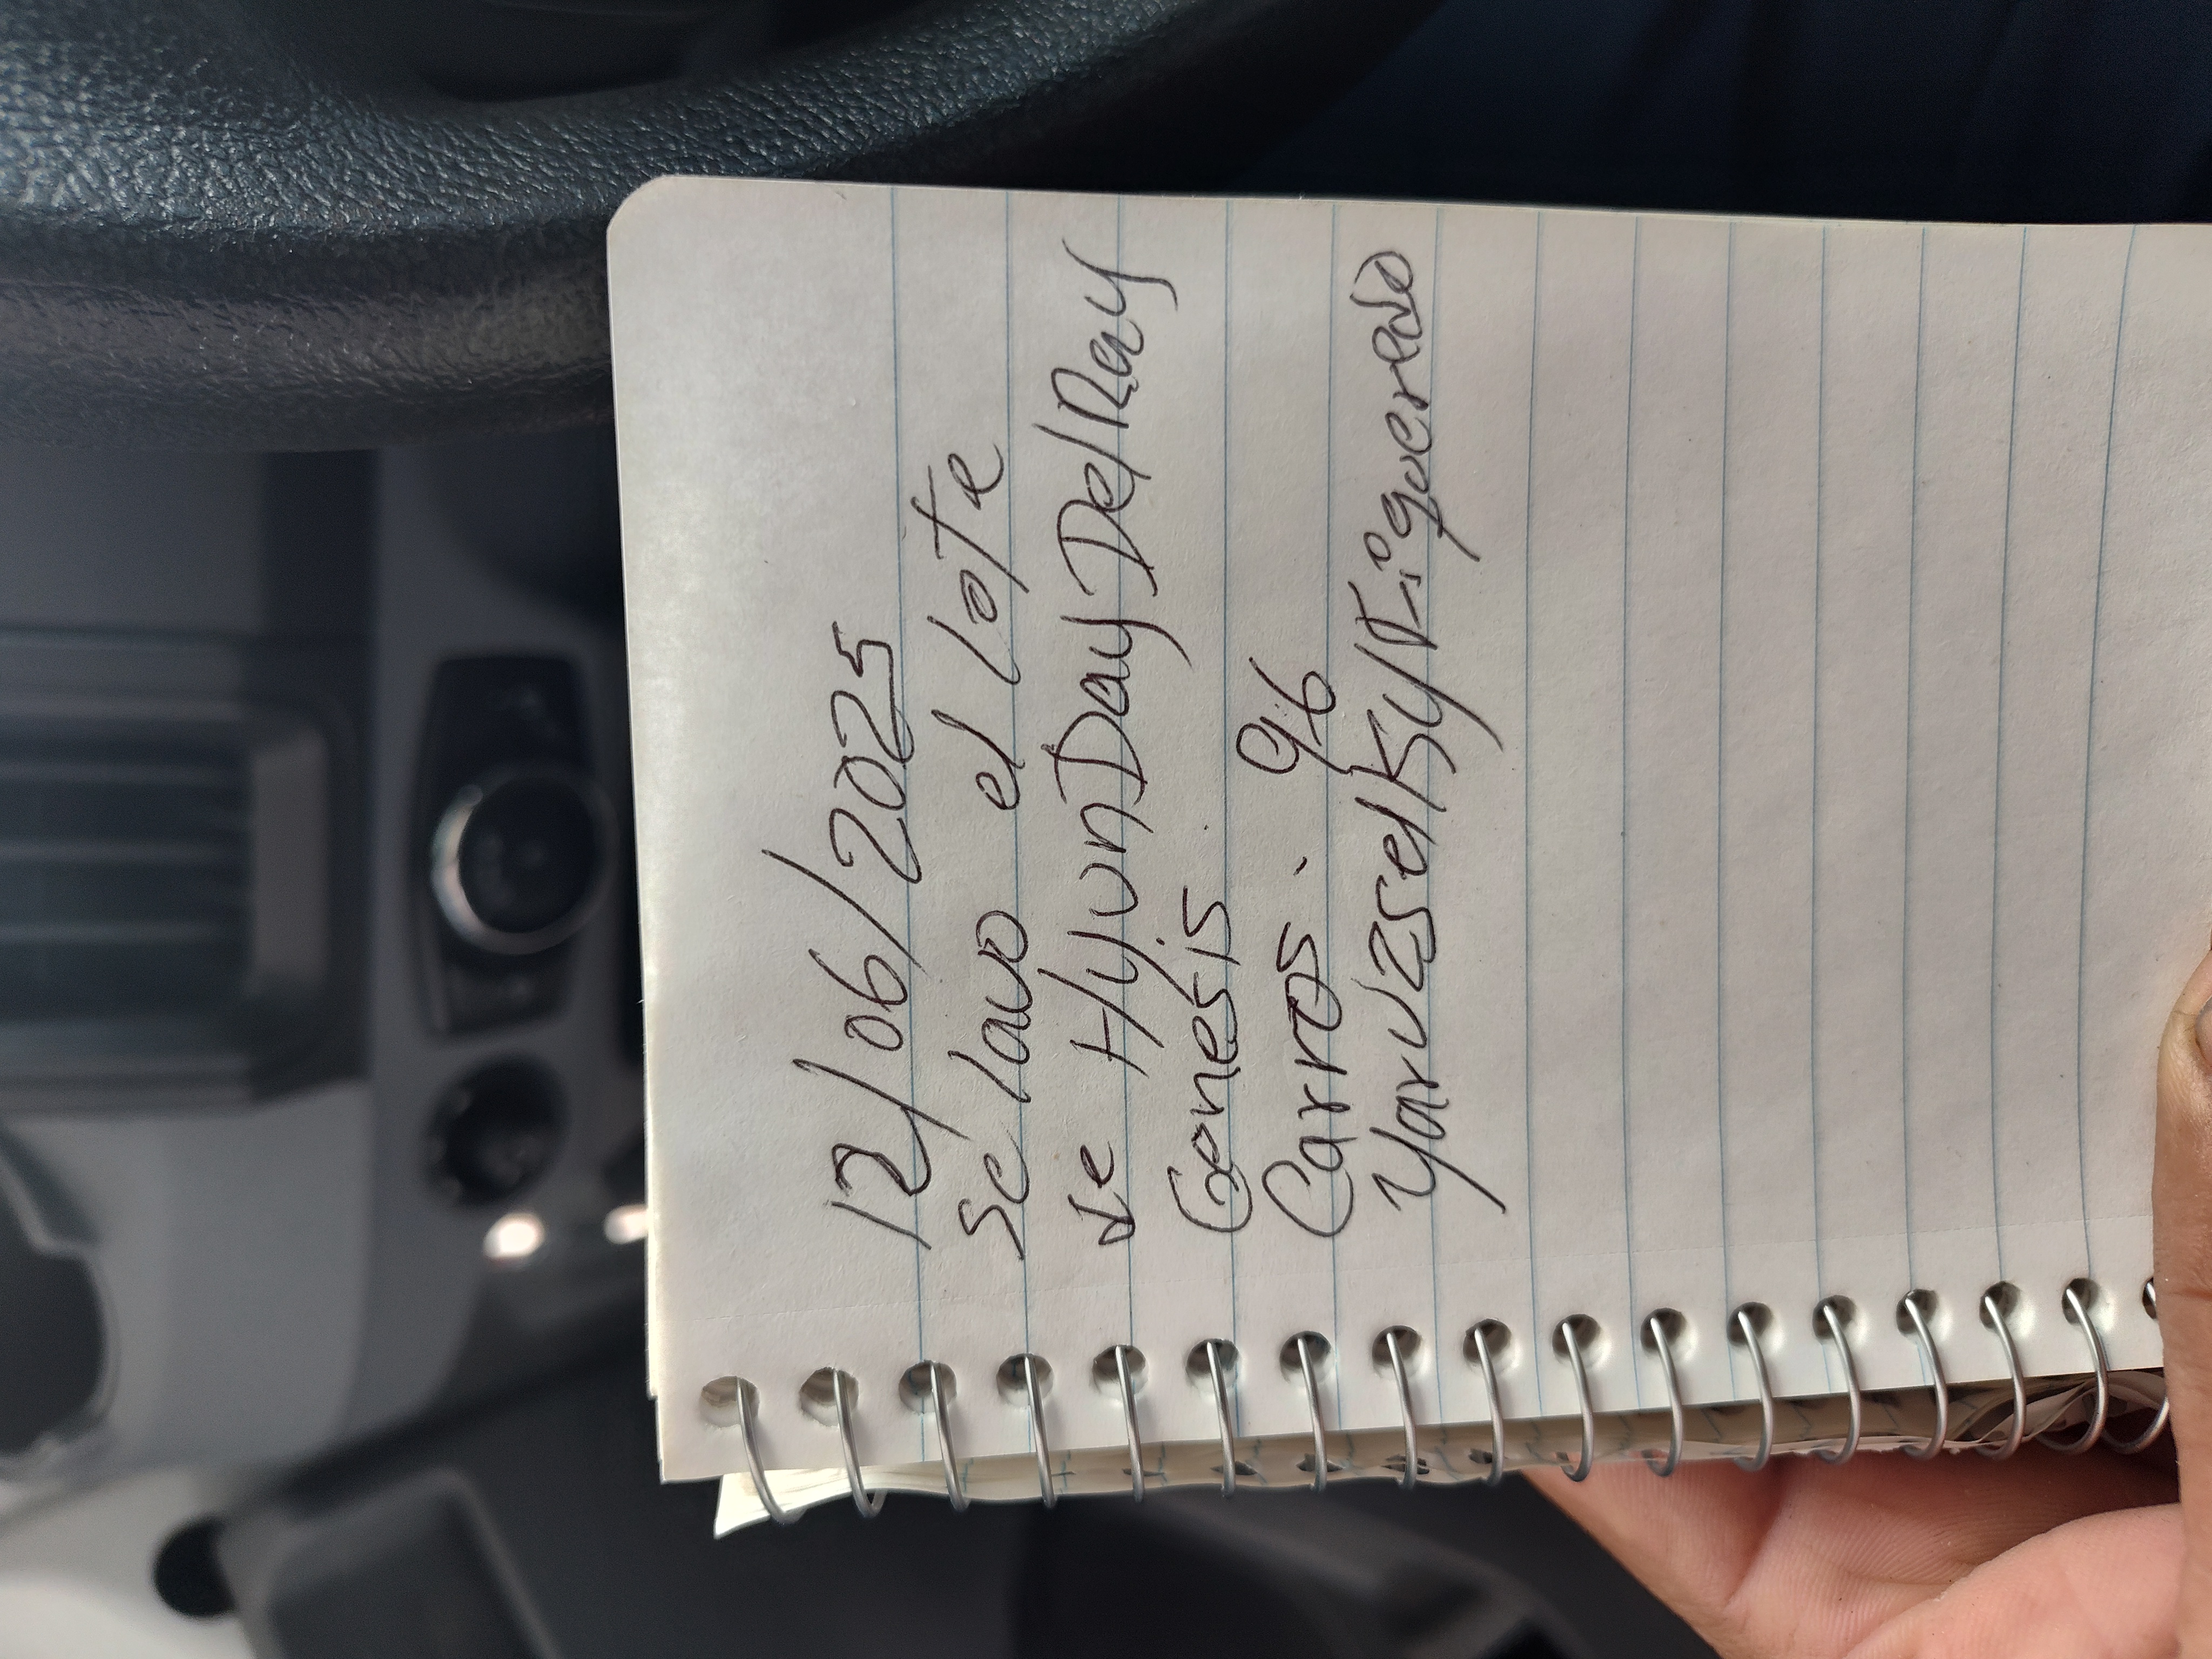 12/06/2025
se lavo el lote
de HyunDay DelRay
Genesis.
Carros. 96
YaruzselKSy Figueredo